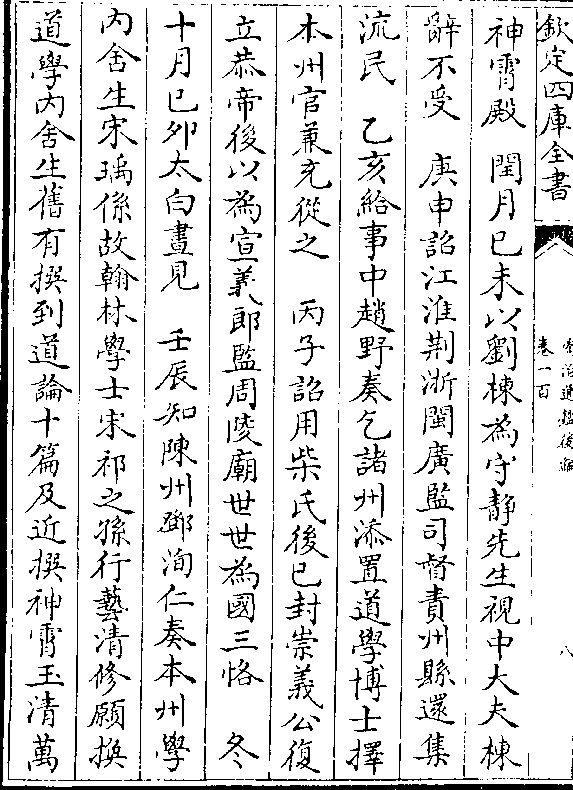 欽定四庫全書
資治通鑑後編
卷一百
八
神霄殿　閏月已未以劉棟為守静先生視中大夫棟
辭不受　庚申詔江淮荆浙閩廣監司督責州縣還集
流民　乙亥給事中趙野奏乞諸州添置道學博士擇
本州官兼充從之　丙子詔用柴氏後已封崇義公復
立恭帝後以為宣義郎監周陵廟世世為國三恪　冬
十月已夘太白晝見　壬辰知陳州鄧洵仁奏本州學
内舍生宋瑀係故翰林學士宋祁之孫行藝清修願換
道學内舍生舊有撰到道論十篇及近撰神霄玉清萬